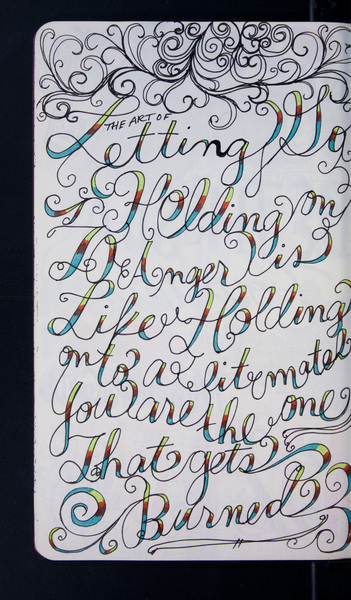 THE ART OF
Letting Go
Holding on
To Anger is
Like Holding
onto a lit match
You are the one
That gets
Burned